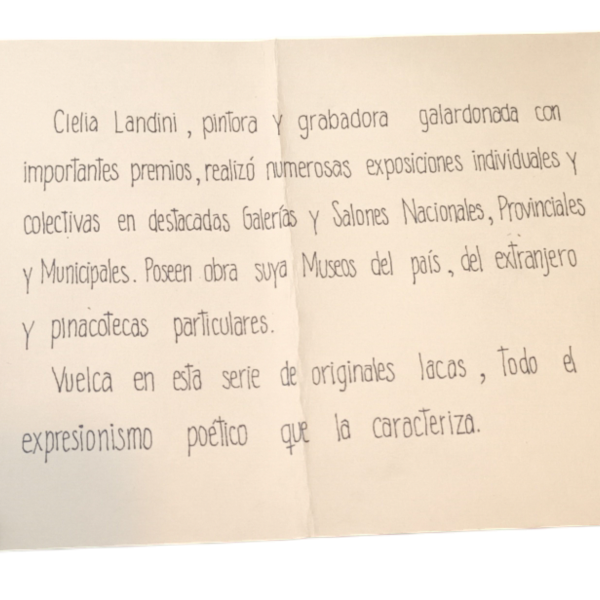 Clelia Landini, pintora y grabadora galardonada con
importantes premios, realizó numerosas exposiciones individuales y
colectivas en destacadas Galerías y Salones Nacionales, Provinciales
y Municipales. Poseen obra suya Museos del país, del extranjero
y pinacotecas particulares.
Vuelca en esta serie de originales lacas, todo el
expresionismo poético que la caracteriza.